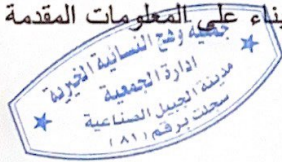 بناء على المعلومات المقدمة
جمعية وهج النسائية الخيرية
ادارة الجمعية
مدينة الجبيل الصناعية
سجلت برقم (٨١)